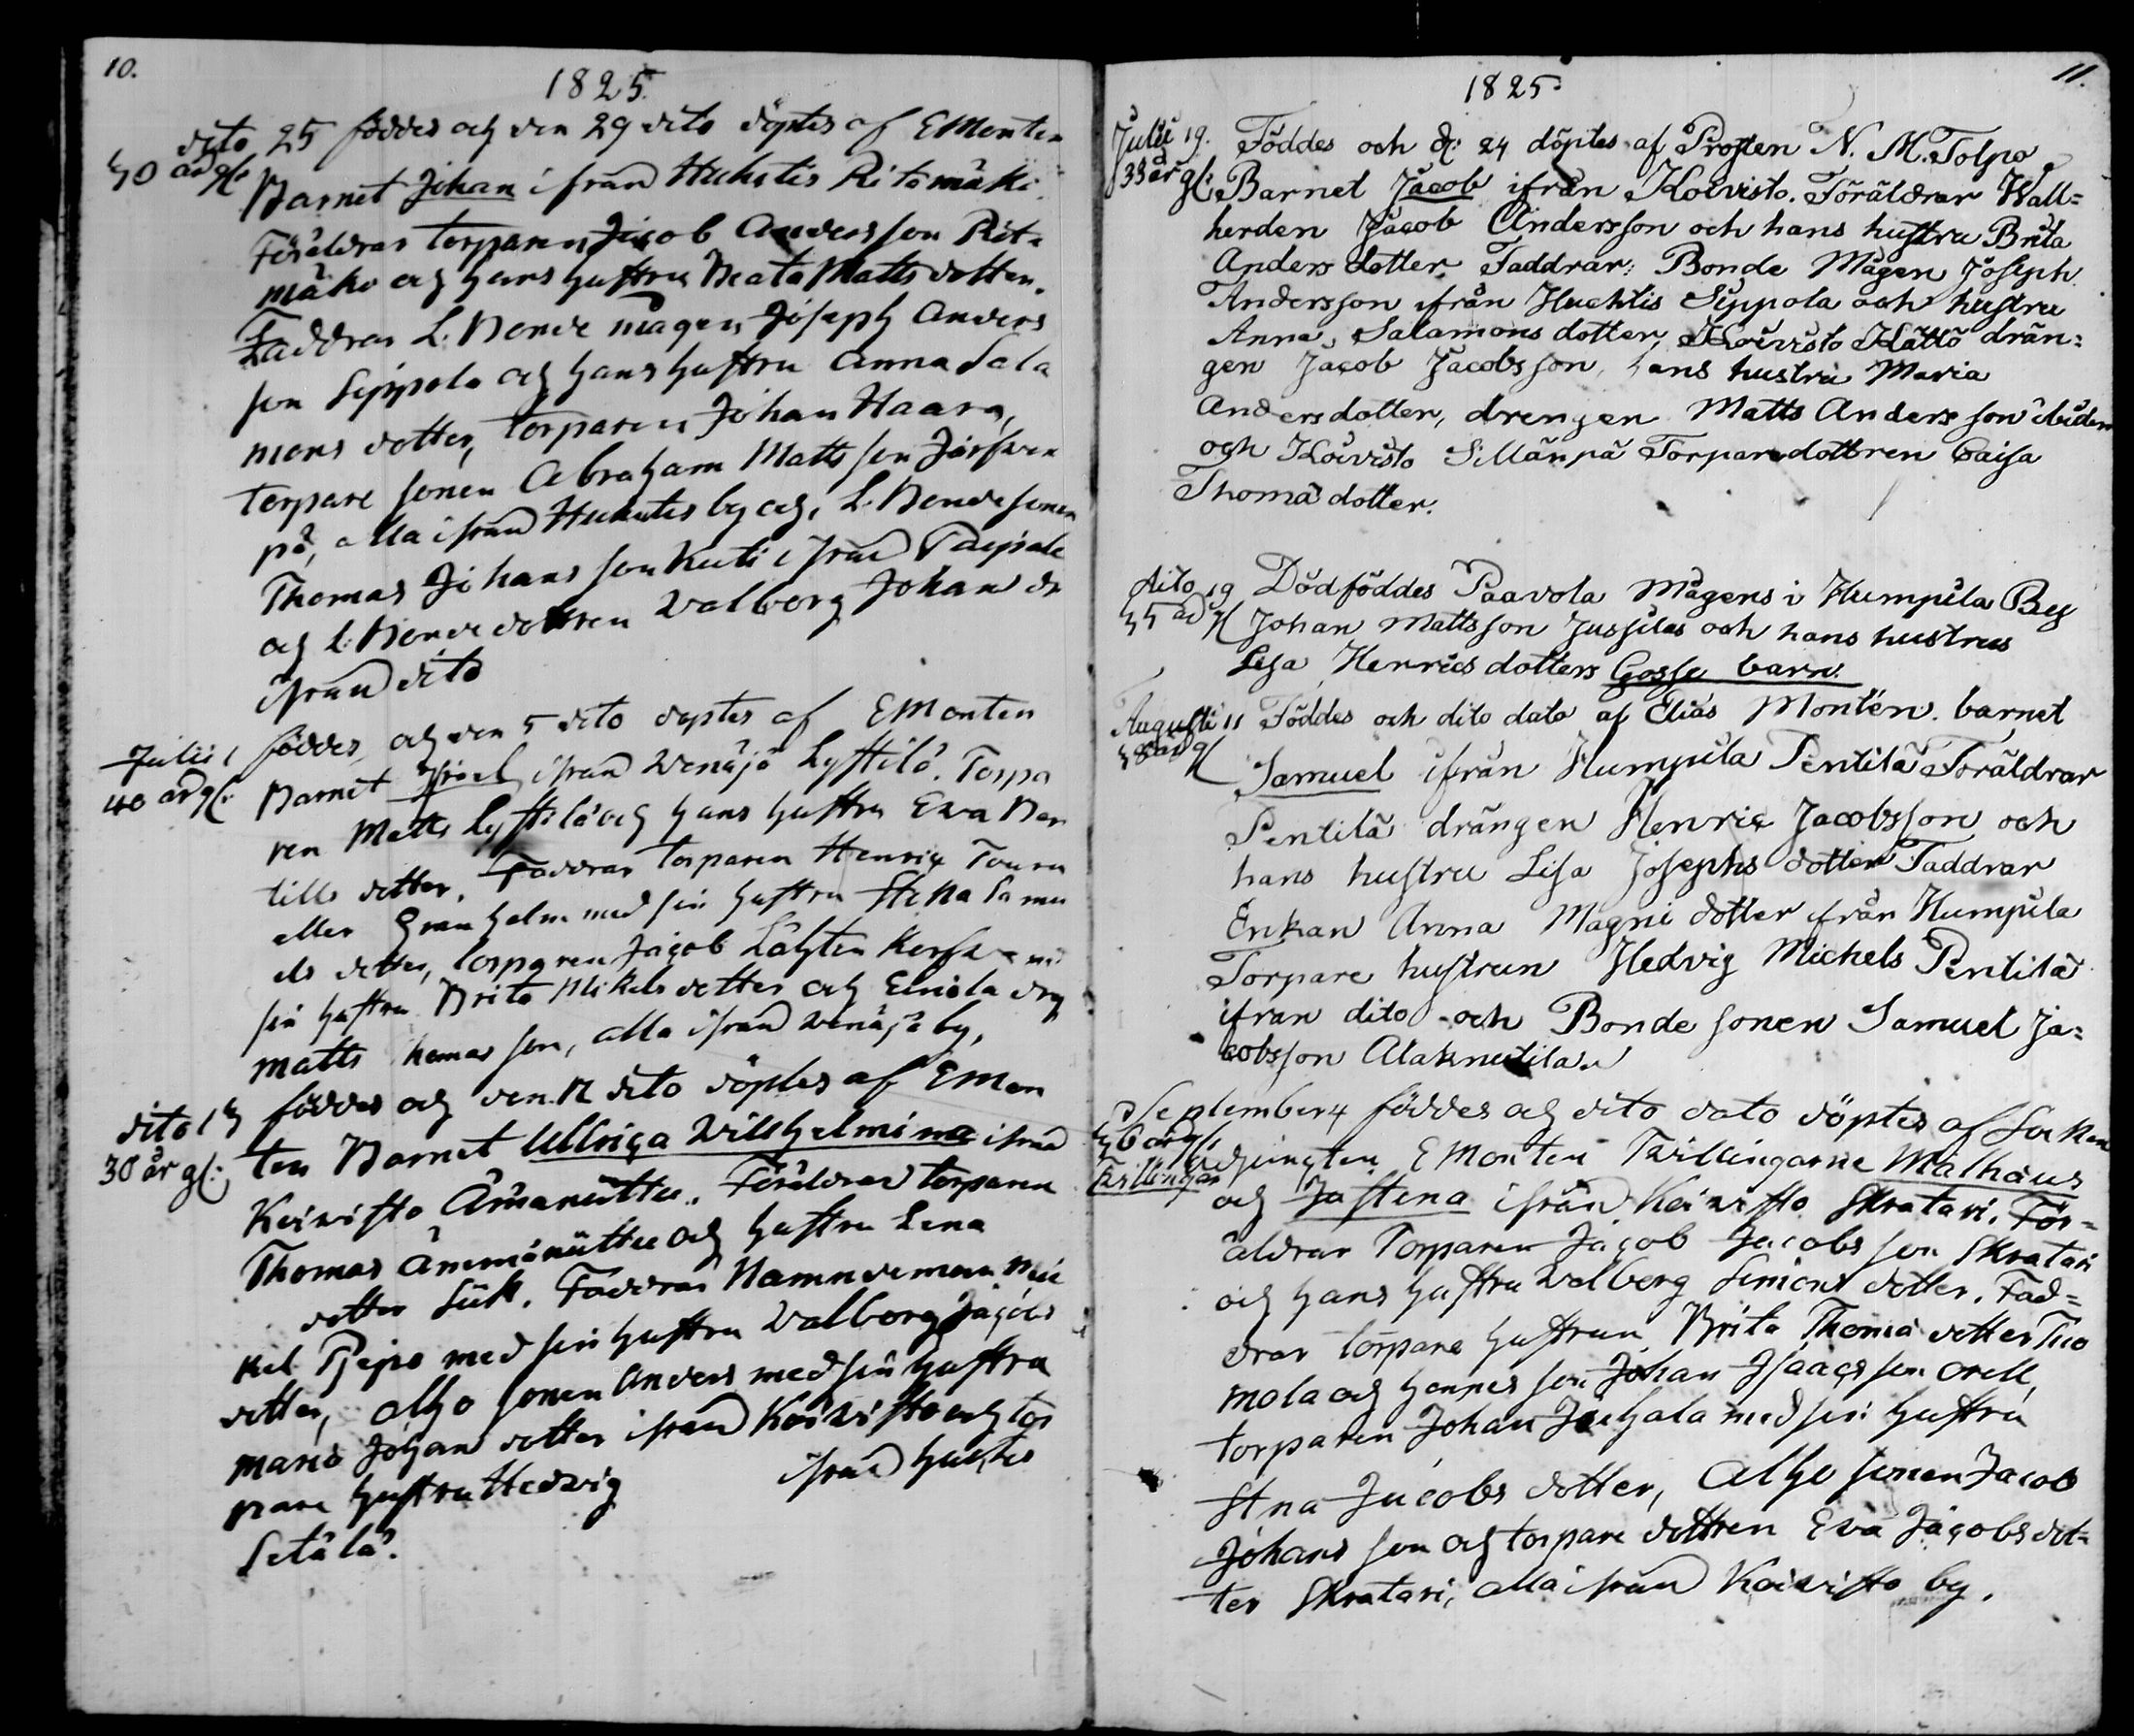 10.
1825.
dito 25 föddes och den 29 dito döptes af E Monten
30 år gl: Barnet Johan ifrån Huhtis Ritamäki
Föräldrar torparen Jacob Andersson Rit-
mäki och hans hustru Beata Matts dotter.
Faddrar L: Bonde mågen Joseph Anders
son Seppola och hans hustru Anna Sala
mons dotter, torparen Johan Haara,
torpare sonen Abraham Mattsson Järfwen
pä, alla ifrån Huhtis by och, L: Bonde sonen
Thomas Johansson Kuti ifrån Paipale
och L: Bonde dottren Valborg Johans dr
ifrån dito
Julii 1 föddes, och den 5 dito döptes af E Monten
40 år gl: Barnet Israel ifrån Wenäjä Lyttilä. Torpa
ren Matts Lyttilä och hans hustru Ewa Ber
tills dotter. Faddrar torparen Henric Touru
eller Granholm med sin hustru Stina Samu
els dotter, torparen Jacob Lähten Korfwa med
sin hustru Brita Mikels dotter och Einola drg
Matts Thomasson, alla ifrån Wenäjä by.
dito 13 föddes och den 17 dito döptes af E Mon
30 år gl: ten Barnet Ullrica Wilhelmina ifrån
Koivisto Ämänüttu. Föräldrar torparen
Thomas Ämmänüttu och hustru Lena
dotter Siik. Faddrar Nämndeman Mic
kel Pjepo med sin hustru Valborg Jacobs
dotter, Alho sonen Anders med sin hustru
Maria Johans dotter ifrån Koivisto och tor
pare hustru Hedvig ifrån Huhtis
Setälä.
11.
1825.
Julii 19. Föddes och d: 24 döptes af Prosten N. M. Tolpo
33 år gl: Barnet Jacob ifrån Koivisto. Föräldrar Wall=
herden Jacob Andersson och hans hustru Brita
Anders dotter. Faddrar: Bonde Mågen Joseph
Andersson ifrån Huchtis Seppola och hustru
Anna Salamons dotter, Koivisto Kättö drän=
gen Jacob Jacobsson, hans hustru Maria
Andersdotter, drengen Matts Andersson ibidem
och Koivisto Sillänpä Torparedottren Caisa
Thomä dotter.
dito 19 Dödföddes Paavola Mågens i Humpila By
35 år gl Johan Mattsson Jussilas och hans hustrus
Lisa Henrics dotters Gosse barn.
Augusti 11 Föddes och dito dato af Elias Montén. barnet
38 år gl Samuel ifrån Humpila Pentilä Föräldrar
Pentilä drängen Henric Jacobsson och
hans hustru Lisa Josephs dotter Faddrar
Enkan Anna Magni dotter ifrån Humpila
Torpare hustrun Hedvig Michels Pentilä
ifrån dito och Bonde sonen Samuel Ja=
cobsson Alaknutila.
September 4 föddes och dito dato döptes af Socken
36 år gl: adjungten E Monten Tvillingarne Mathæus
Tvillingar
och Justina ifrån Koivisto Skratari. För=
äldrar Torparen Jacob Jacobsson Skratari
och hans hustru Valborg Simons dotter. Fad=
drar torpare hustrun Brita Thomä dotter Tuo
mola och hennes son Johan Isaacsson Orell,
torparen Johan Juhala med sin hustru
Stna Jacobs dotter, Alho sonen Jacob
Johansson och torpare dottren Eva Jacobs dot=
ter Skratari, alla ifrån Koivisto by.